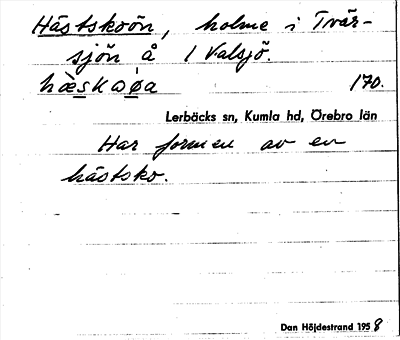 Hästskoön, holme i Tvär-
sjön å 1 Valsjö.
hæskωøa 170.
Lerbäcks sn, Kumla hd, Örebro län
Har formen av en
hästsko.
Dan Höjdestrand 1958